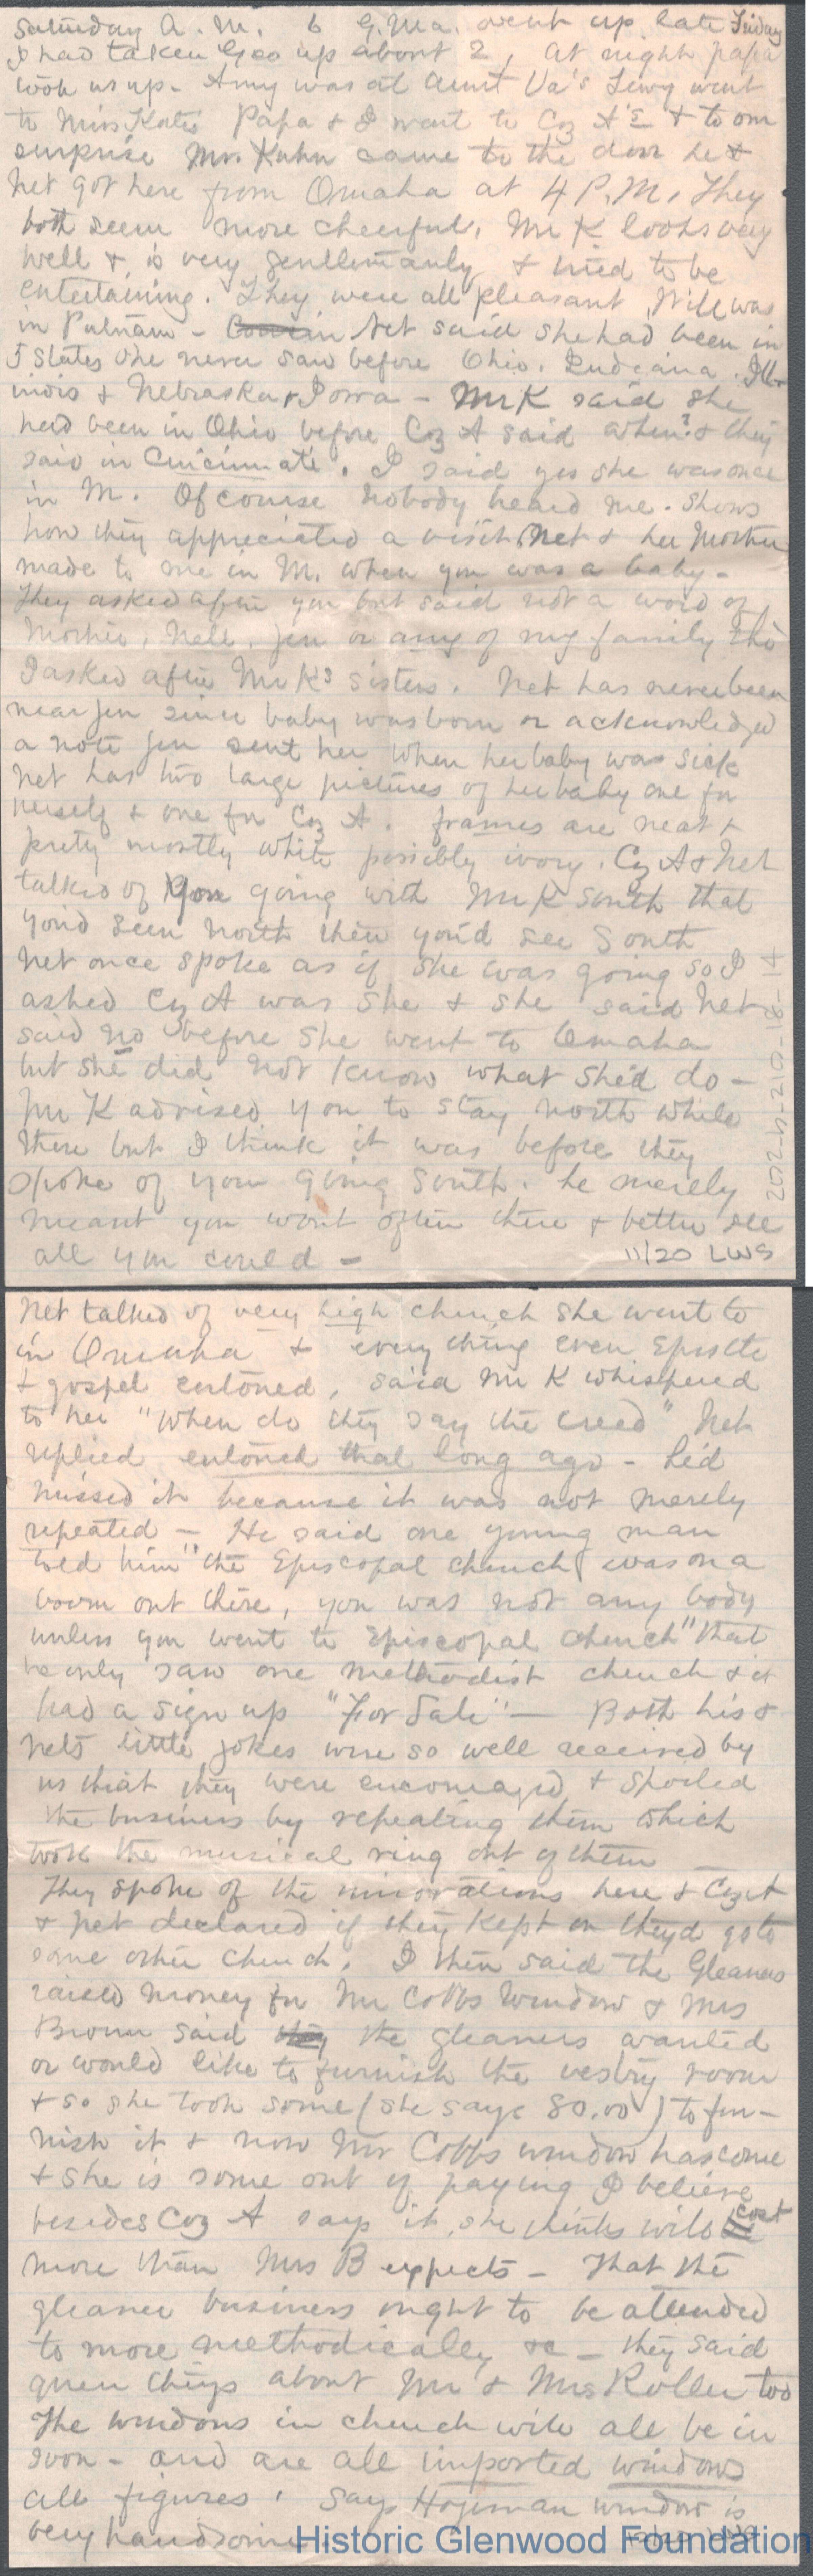 Saturday A.M. 6 G.Ma. went up late Friday
I had taken Geo up about 2, At night papa
took us up. Amy was at Aunt Va's Lewy went
to Miss Katie Papa & I went to Coz A's & to our
surprise Mr. Kuhn came to the door he &
Net got here from Omaha at 4 P.M. They
both seem more cheerful, Mr K looks very
well & is very gentlemanly & tried to be
entertaining. They were all pleasant, Will was
in Putnam - Cousin Net said she had been in
5 States she never saw before Ohio. Indiana. Ill-
inois & Nebraska & Iowa - Mr K said she
had been in Ohio before Coz A said when? & they
said in Cincinnati. I said yes she was once
in M. Of course nobody heard me. Shows
how they appreciated a visit Net & her Mother
made to me in M. when you was a baby -
They asked after you but said not a word of
Mother, Nell, Jen or any of my family tho
I asked after Mr K's sisters. Net has never been
near Jen since baby was born or acknowledged
a note Jen sent her when her baby was sick
Net has two large pictures of her baby one for
herself & one for Coz A. frames are neat &
prety mostly white possibly ivory. Coz A & Net
talked of you going with Mr K South that
you'd seen North then you'd see South
Net once spoke as if she was going so I
asked Coz A was she & she said Net
said no before she went to Omaha
but she did not know what she'd do -
Mr K advised you to stay North while
there but I think it was before they
spoke of your going South. he merely
meant you wont often there & better see
all you could -
11/20 LWS
Net talked of very high church she went to
in Omaha & every thing even Epistle
& gospel entoned, said Mr K whispered
to her "when do they say the creed" Net
replied entoned that long ago - he'd
missed it because it was not merely
repeated - He said one young man
told him "the Episcopal church was on a
boom out there, you was not any body
unless you went to Episcopal church" that
he only saw one methodist church & it
had a sign up "For Sale" - Both his &
Nets little jokes were so well received by
us that they were encouraged & spoiled
the business by repeating them which
took the musical ring out of them
They spoke of the innovations here & Coz A
& Net declared if they kept on they'd go to
some other church. I then said the Gleaners
raised money for Mr Cobbs Window & Mrs
Brown said they the gleaners wanted
or would like to furnish the vestry room
& so she took some (she says 80.00) to fur-
nish it & now Mr Cobbs window has come
& she is some out of paying I believe
besides Coz A says it, she thinks will cost
more than Mrs B expects - That the
gleaner business ought to be attended
to more methodically &c - they said
queer things about Mr & Mrs Roller too
The windows in church will all be in
soon - and are all imported windows
all figures. Says Hageman window is
very handsome
Historic Glenwood Foundation